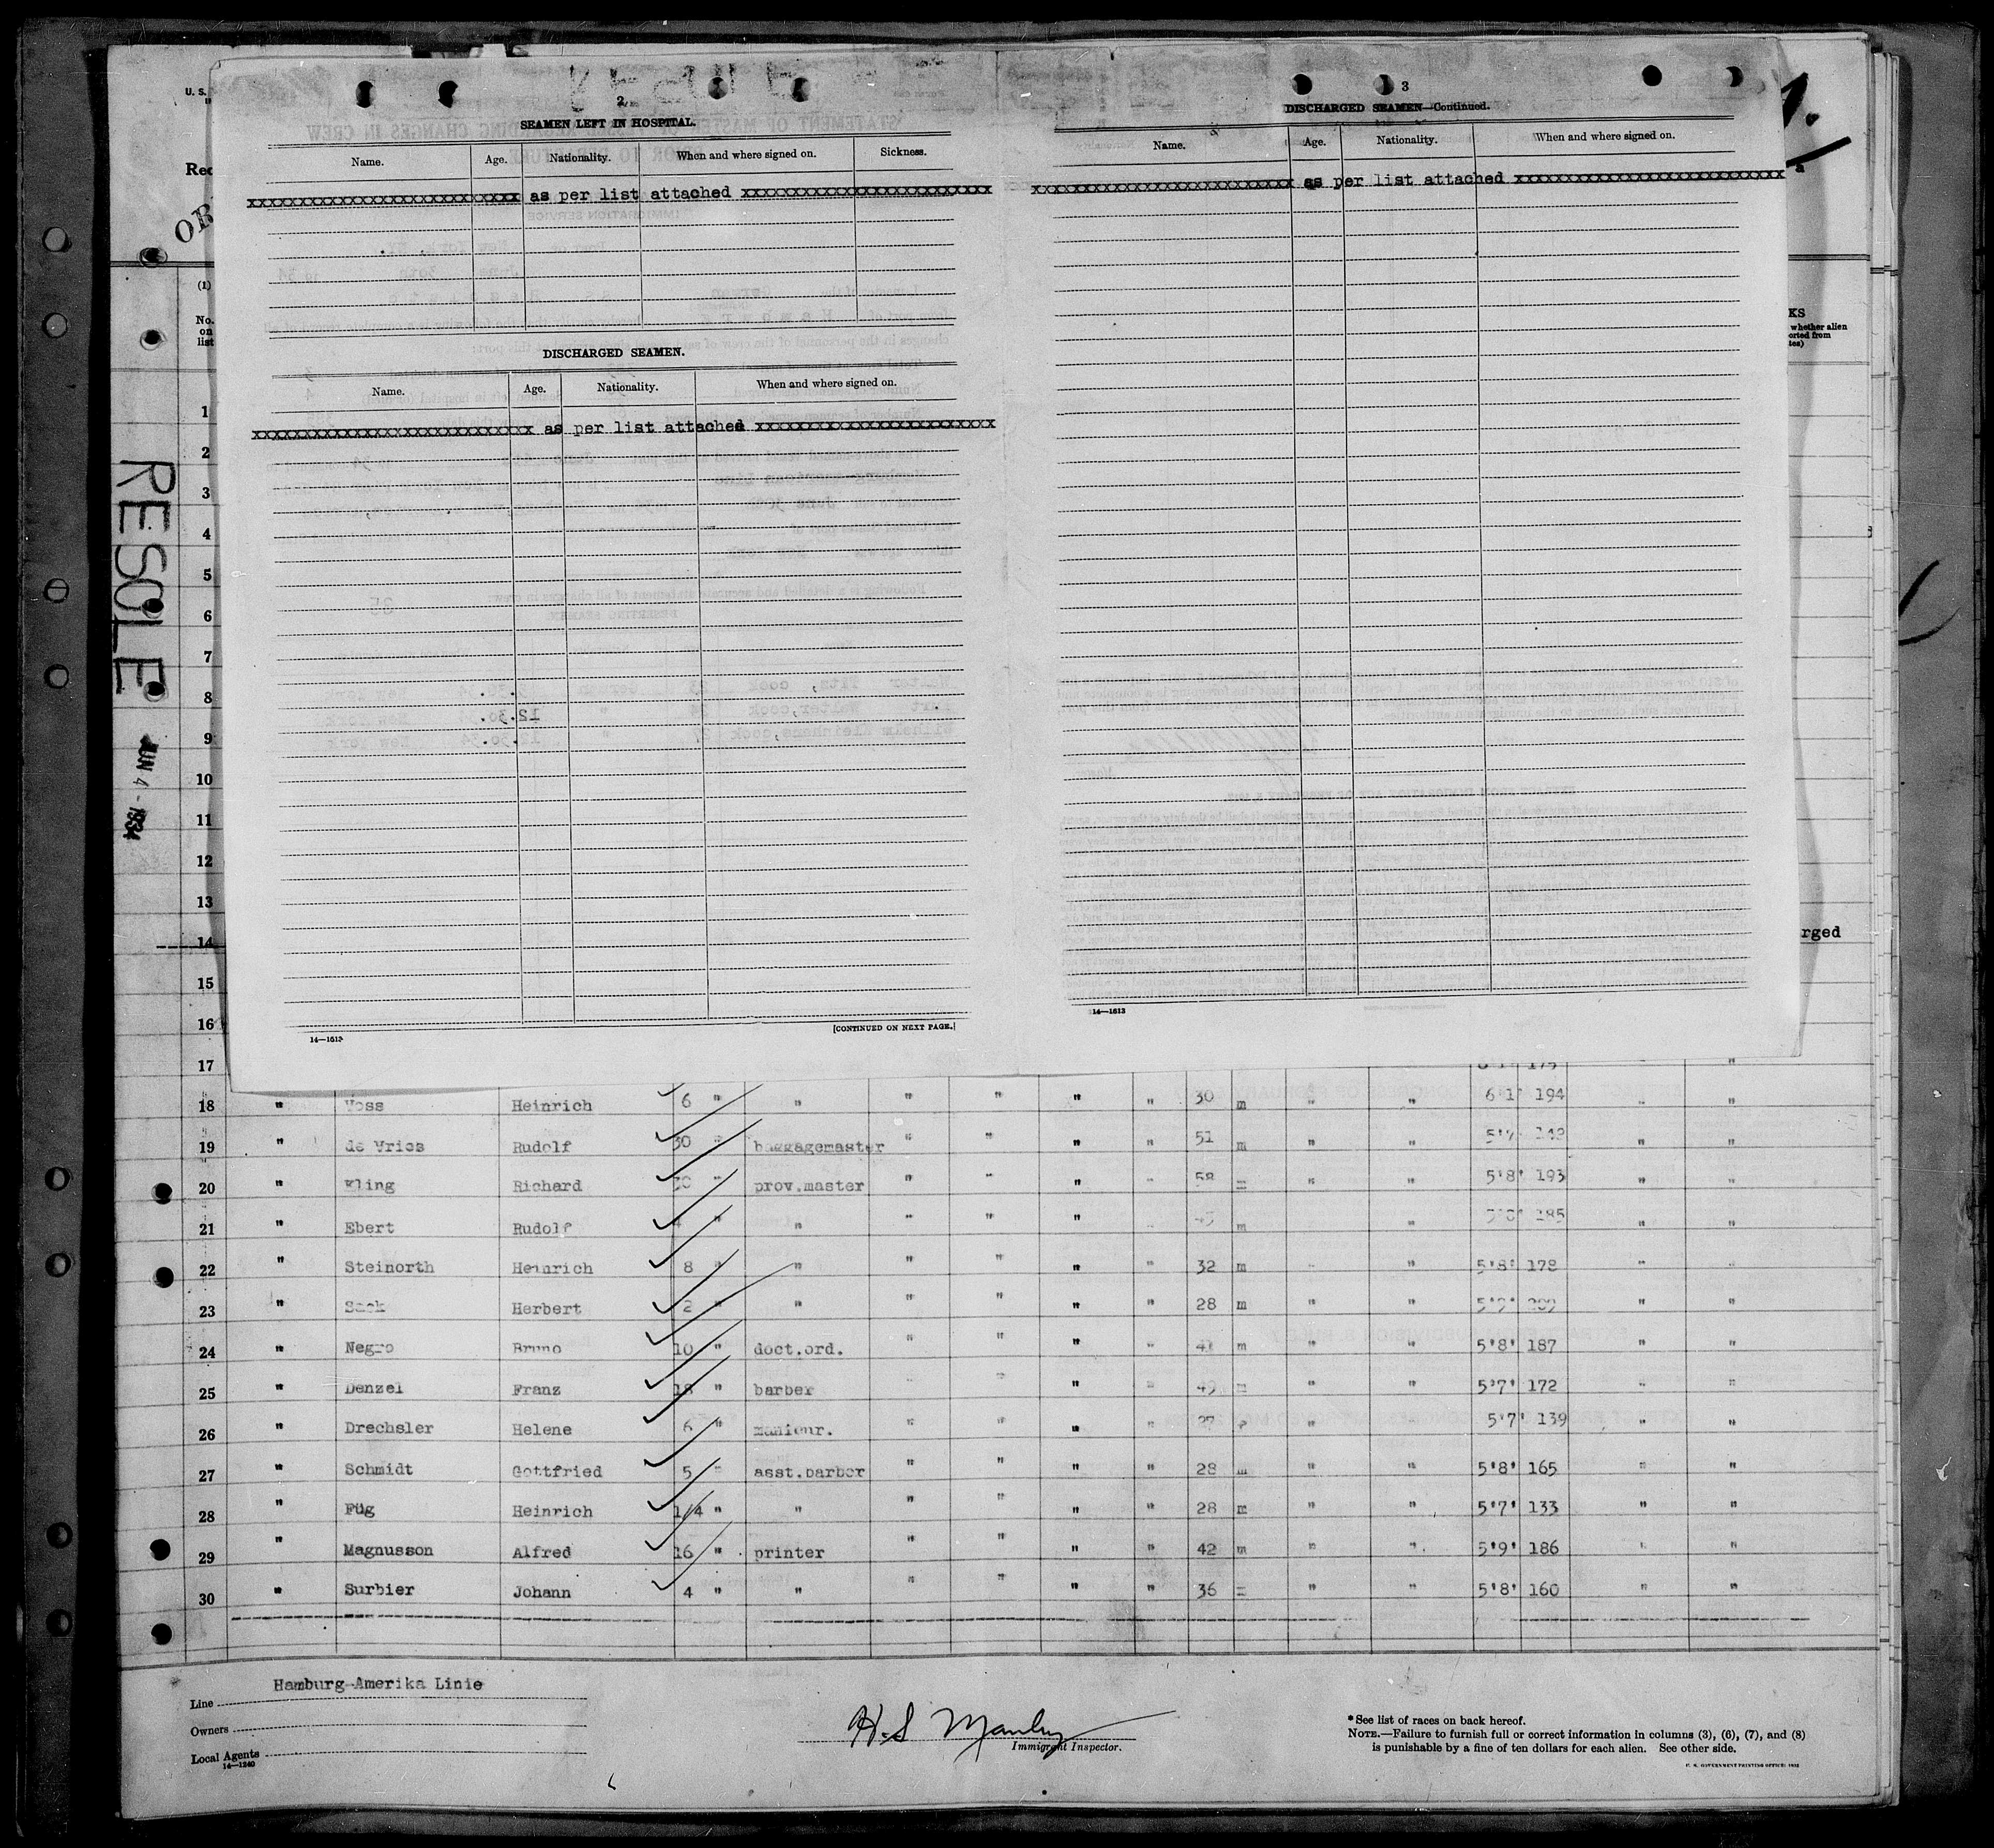 U. S.
Rec
OR
(1)
No.
on
list
RESOLE
JUN 4 - 1934
1.
KS
whether alien
orted from
tes)
rged
2
SEAMEN LEFT IN HOSPITAL.
Name. Age. Nationality. When and where signed on. Sickness.
xxxxxxxxxxxxxxxxxxxxxxxxxxxx as per list attached xxxxxxxxxxxxxxxxxxxxxxxxxx
DISCHARGED SEAMEN.
Name. Age. Nationality. When and where signed on.
xxxxxxxxxxxxxxxxxxxxxxxxxxxxx as per list attached xxxxxxxxxxxxxxxxxxxxxxxxx
[CONTINUED ON NEXT PAGE.]
14—1613
3
DISCHARGED SEAMEN—Continued.
Name. Age. Nationality. When and where signed on.
xxxxxxxxxxxxxxxxxxxxxxxxxxx as per list attached xxxxxxxxxxxxxxxxxxxxxxxxxxxx
14—1613
1
2
3
4
5
6
7
8
9
10
11
12
13
14
15
16
17 175 "
18 " Voss Heinrich 6 " " " " " " 30 m " " 6'1' 194 " "
19 " de Vries Rudolf 30 " baggagemaster " " " " 51 m " " 5'7' " "
20 " Kling Richard 30 " prov.master " " " " 58 m " " 5'8' 193 " "
21 " Ebert Rudolf 4 " " " " " " m " 185 " "
22 " Steinorth Heinrich 8 " " " " " " 32 m " " 5'8' 178 " "
23 " Sack Herbert 2 " " " " " " 28 m " " 5'9' " "
24 " Negro Bruno 10 " doct.ord. " " " " 41 m " " 5'8' 187 " "
25 " Denzel Franz 18 " barber " " " " 49 m " " 5'7' 172 " "
26 " Drechsler Helene 6 " manicur. " " " " 27 " " 5'7' 139 " "
27 " Schmidt Gottfried 5 " asst.barber " " " " 28 m " " 5'8' 165 " "
28 " Füg Heinrich 1/4 " " " " " " 28 m " " 5'7' 133 " "
29 " Magnusson Alfred 16 " printer " " " " 42 m " " 5'9' 186 " "
30 " Surbier Johann 4 " " " " " " 36 m " " 5'8' 160 " "
Line Hamburg-Amerika Linie
Owners
Local Agents
14—1240
H.S Manley
Immigrant Inspector.
*See list of races on back hereof.
NOTE.—Failure to furnish full or correct information in columns (3), (6), (7), and (8)
is punishable by a fine of ten dollars for each alien. See other side.
U. S. GOVERNMENT PRINTING OFFICE: 1932